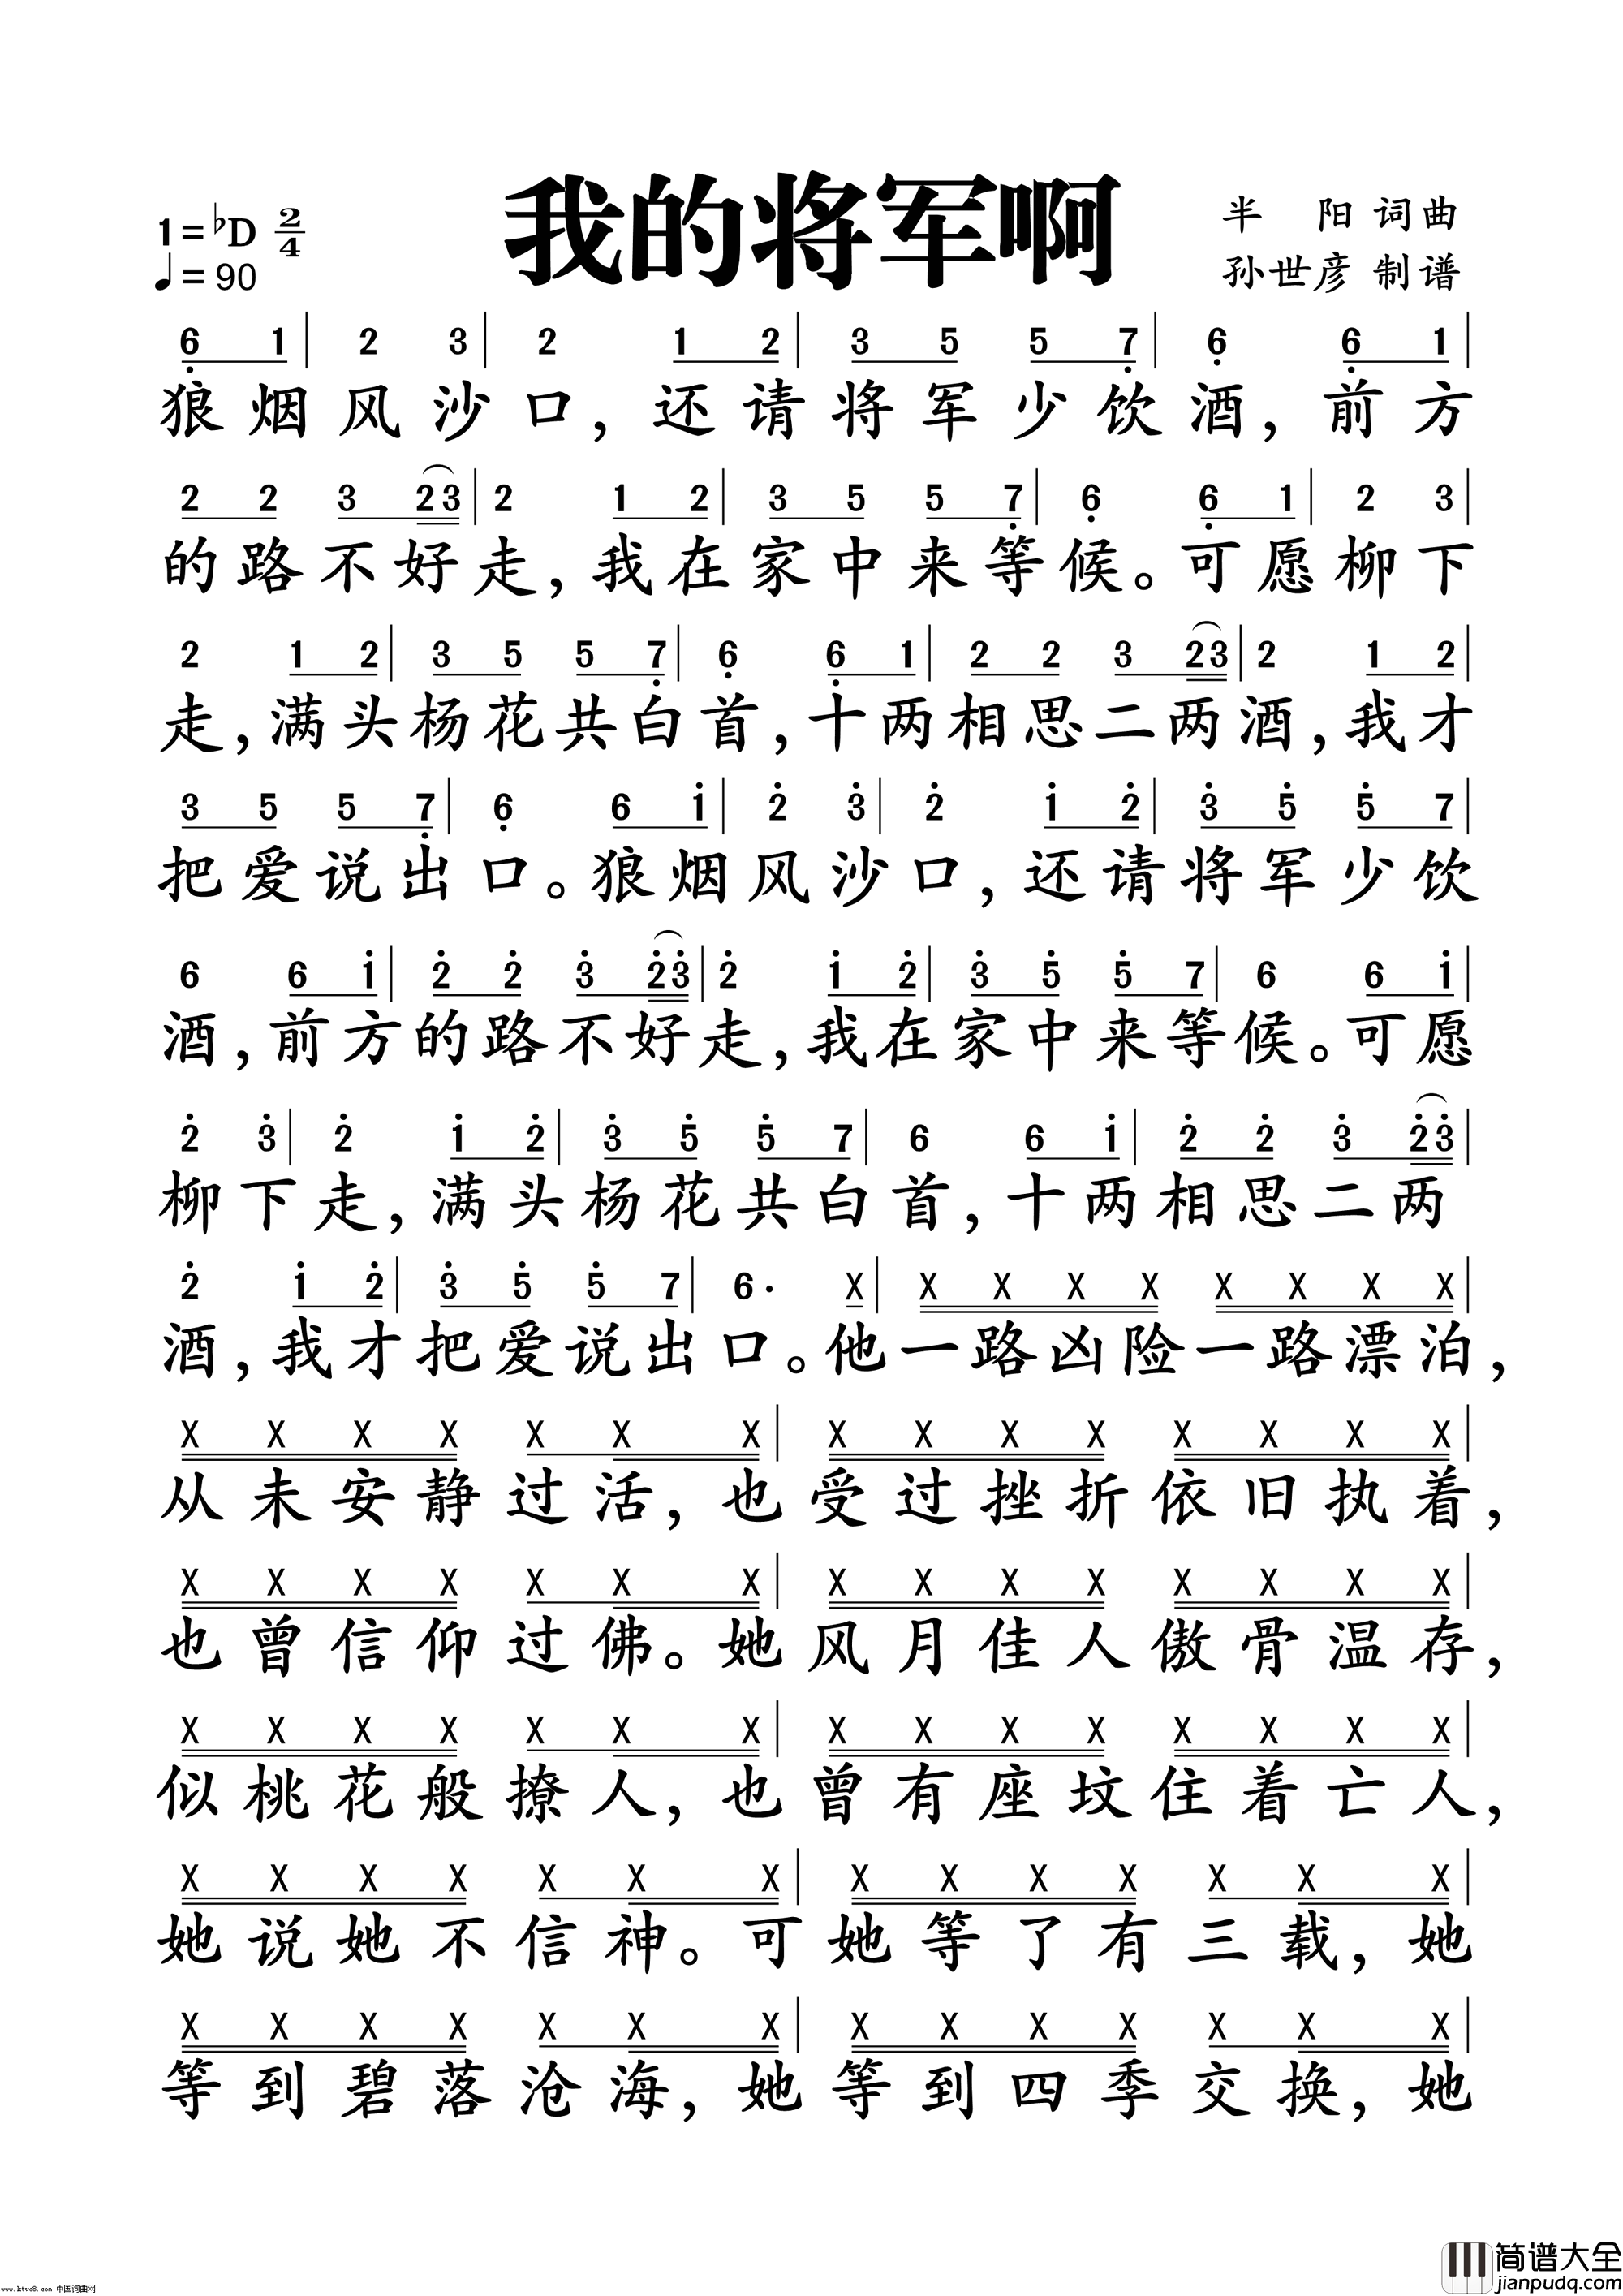 我的将军啊
1=♭D 2/4
♩=90
半 阳 词曲
孙世彦 制谱
6̣ 1 | 2 3 | 2 1 2 | 3 5 5 7̣ | 6̣ 6̣ 1 |
狼烟风沙口，还请将军少饮酒，前方
2 2 3 2 3 | 2 1 2 | 3 5 5 7̣ | 6̣ 6̣ 1 | 2 3 |
的路不好走，我在家中来等候。可愿柳下
2 1 2 | 3 5 5 7̣ | 6̣ 6̣ 1 | 2 2 3 2 3 | 2 1 2 |
走，满头杨花共白首，十两相思二两酒，我才
3 5 5 7̣ | 6̣ 6 1̇ | 2̇ 3̇ | 2̇ 1̇ 2̇ | 3̇ 5̇ 5̇ 7 |
把爱说出口。狼烟风沙口，还请将军少饮
6 6 1̇ | 2̇ 2̇ 3̇ 2̇ 3̇ | 2̇ 1̇ 2̇ | 3̇ 5̇ 5̇ 7 | 6 6 1̇ |
酒，前方的路不好走，我在家中来等候。可愿
2̇ 3̇ | 2̇ 1̇ 2̇ | 3̇ 5̇ 5̇ 7 | 6 6 1̇ | 2̇ 2̇ 3̇ 2̇ 3̇ |
柳下走，满头杨花共白首，十两相思二两
2̇ 1̇ 2̇ | 3̇ 5̇ 5̇ 7 | 6· X | X X X X X X X X |
酒，我才把爱说出口。他一路凶险一路漂泊，
X X X X X X X | X X X X X X X X |
从未安静过活，也受过挫折依旧执着，
X X X X X X X | X X X X X X X X |
也曾信仰过佛。她风月佳人傲骨温存，
X X X X X X X | X X X X X X X X |
似桃花般撩人，也曾有座坟住着亡人，
X X X X X X X | X X X X X X X |
她说她不信神。可她等了有三载，她
X X X X X X X | X X X X X X X |
等到碧落沧海，她等到四季交换，她
www.ktvc8.com 中国词曲网
简谱大全
jianpudq.com